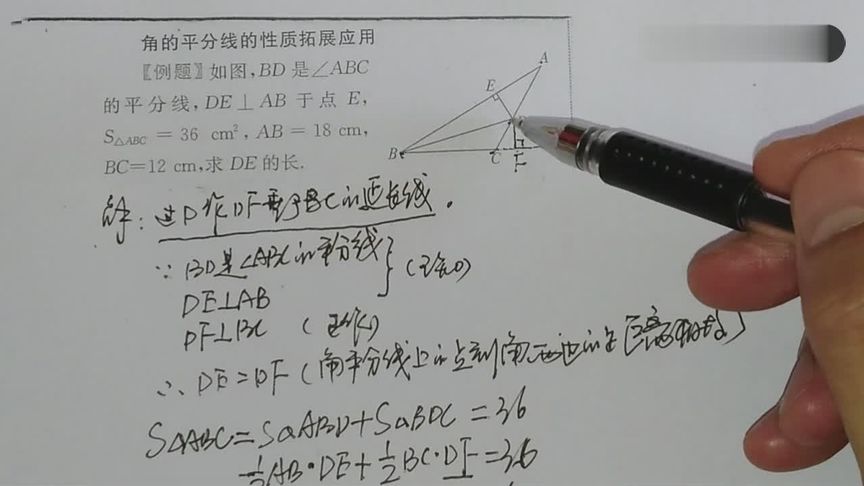 角的平分线的性质拓展应用
〖例题〗如图,BD 是∠ABC
的平分线,DE⊥AB 于点 E,
S△ABC = 36 cm², AB = 18 cm,
BC=12 cm,求 DE 的长.
A
E
B
C
F
解：过D作DF垂于BC的延长线.
∵ BD是∠ABC的平分线
DE⊥AB
(已知)
DF⊥BC (已作)
∴ DE=DF (角平分线上的点到角两边的距离相等)
S△ABC=S△ABD+S△BDC=36
½AB·DE+½BC·DF=36